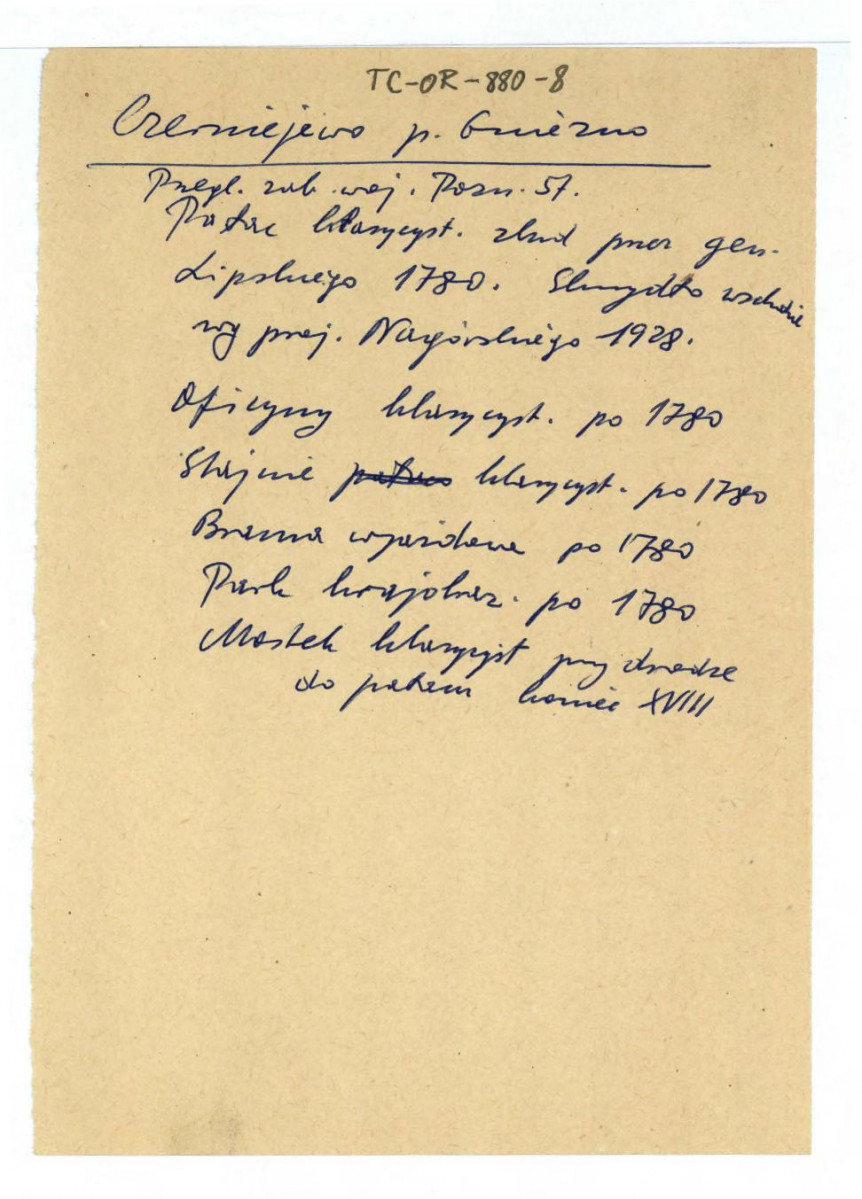 TC-OR-880-8
Czerniejewo p. Gniezno
Przegl. zab. woj. Pozn. 57.
Pałac klasycyst. zbud przez gen.
Lipskiego 1780. Skrzydło wschodnie
wg proj. Nagórskiego 1928.
Oficyny klasycyst. po 1780
Stajnie pałac klasycyst. po 1780
Brama wjazdowa po 1780
Park krajobraz. po 1780
Mostek klasycyst przy drodze
do pałacu koniec XVIII